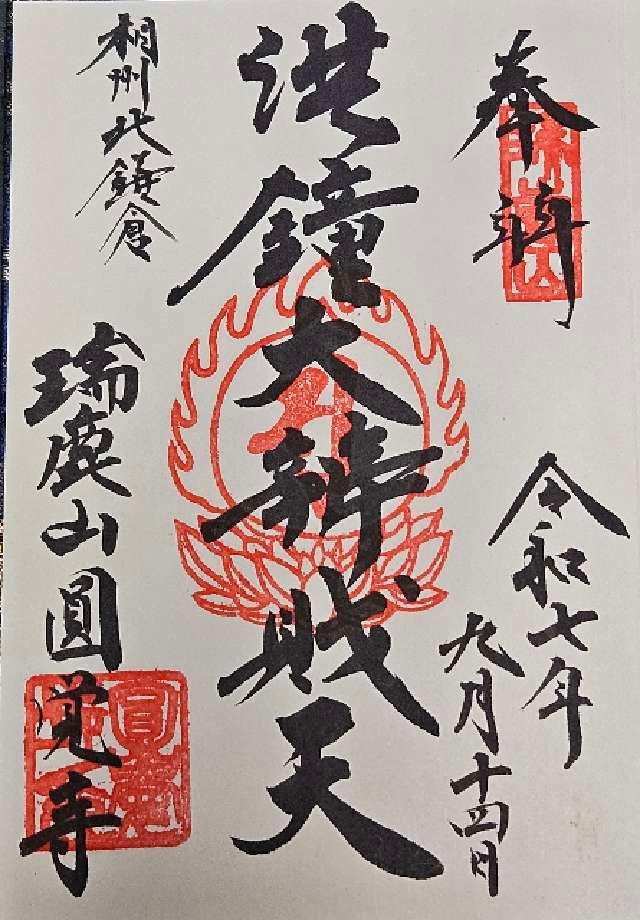 奉拝
令和七年
九月十四日
洪鐘大辨財天
相州北鎌倉
瑞鹿山圓覚寺